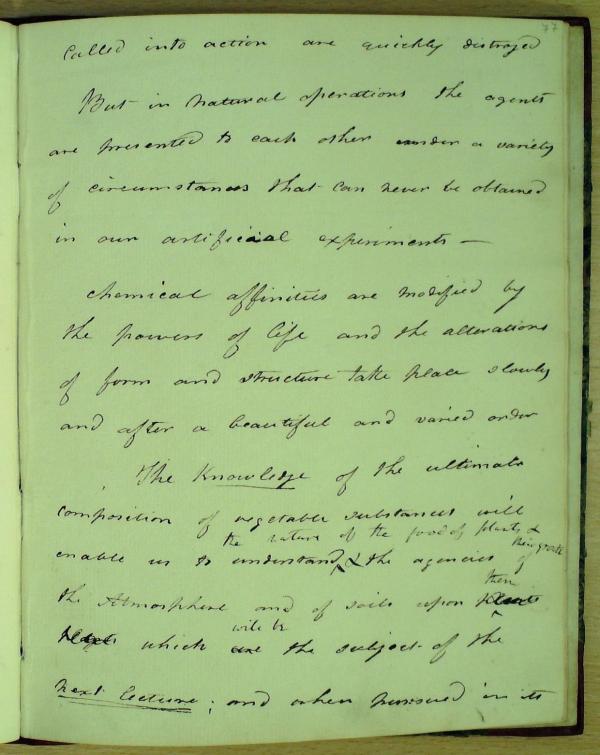 77
called into action are quickly distroyed
But in natural operations the agents
are presented to each other under a variety
of circumstances that can never be obtained
in our artificial experiments —
chemical affinities are modified by
the powers of life and the alterations
of form and structure take place slowly
and after a beautiful and varied order
The Knowledge of the ultimate
composition of vegetable substances will
the nature of the food of plants &
their growth
enable us to understand & the agencies of
the Atmosphere and of soils upon
them
which are the subject of the
will be
next lecture; and when pursued in its